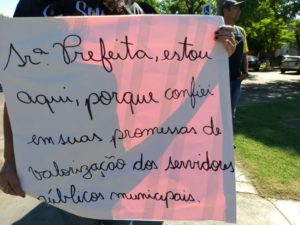 Srª Prefeita, estou
aqui, porque confiei
em suas promessas de
valorização dos servidores
públicos municipais.